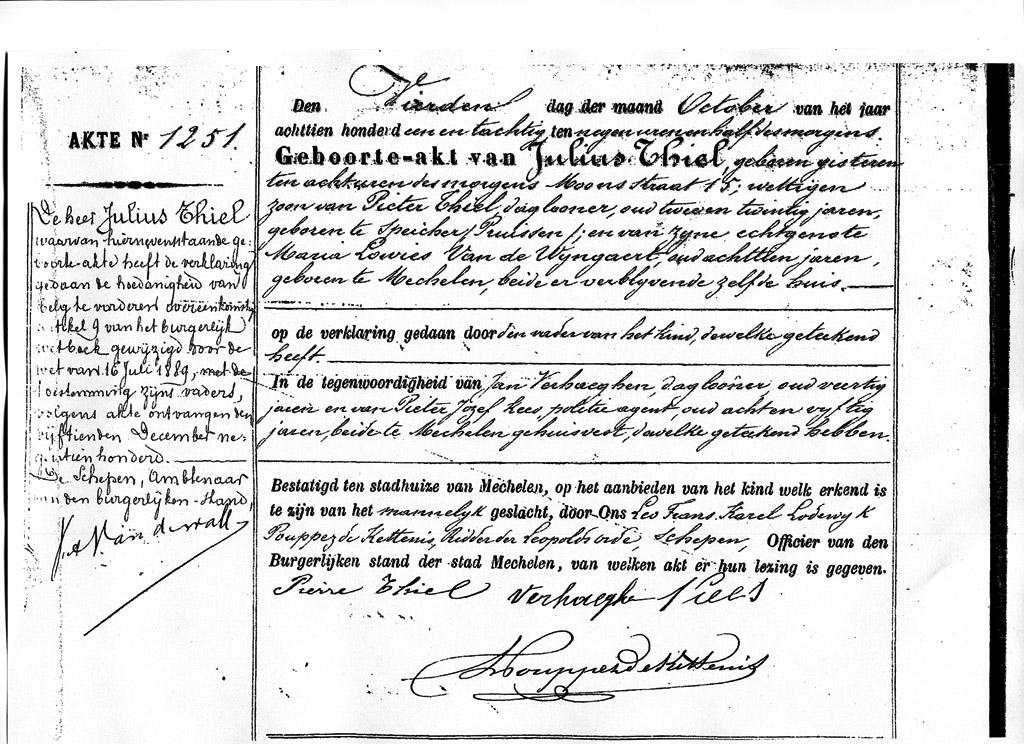 AKTE Nr 1251.
De heer Julius Thiel
waarvan hiernevenstaande ge-
boorte-akte heeft de verklaring
gedaan de hoedanigheid van
Belg te vorderen overeenkomstig
artikel 9 van het burgerlijk
wetboek gewijzigd voor de
wet van 16 Juli 1889, met de
toestemming zijns vaders,
volgens akte ontvangen den
vijftienden December ne-
gentien honderd.
De Schepen, Ambtenaar
van den burgerlijken Stand,
Den Vierden dag der maand October van het jaar
achttien honderd een en tachtig ten negen uren en half des morgens.
Geboorte-akt van Julius Thiel, geboren gisteren
ten acht uren des morgens Moons straat 15; wettigen
zoon van Pieter Thiel, daglooner, oud twee en twintig jaren,
geboren te Speicher (Pruissen); en van zyne echtgenote
Maria Lowies Van de Wyngaert, oud achttien jaren,
geboren te Mechelen, beide er verblyvende zelfde huis.
op de verklaring gedaan door den vader van het kind, dewelke geteekend
heeft.
In de tegenwoordigheid van Jan Verhaeghen, daglooner, oud veertig
jaren en van Pieter Jozef Lees, politie agent, oud acht en vyftig
jaren, beide te Mechelen gehuisvest, dewelke geteekend hebben.
Bestatigd ten stadhuize van Mechelen, op het aanbieden van het kind welk erkend is
te zijn van het mannelyk geslacht, door Ons Leo Frans Karel Lodewyk
Pouppez de Kettenis, Ridder der Leopoldsorde, Schepen, Officier van den
Burgerlijken stand der stad Mechelen, van welken akt er hun lezing is gegeven.
Pierre Thiel Verhaeghe
Pouppez de Kettenis